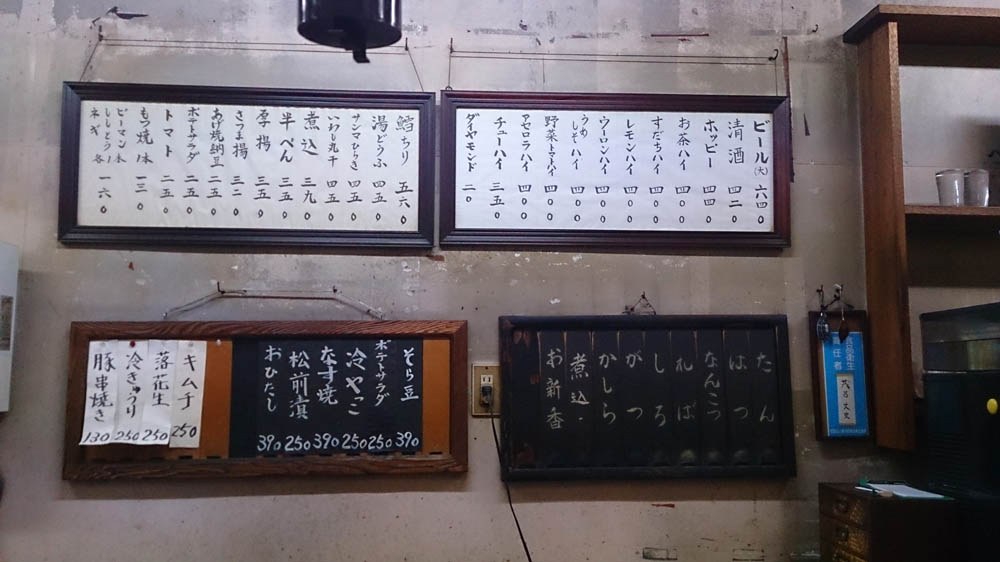 ビール(大) 六四0
清酒 四二0
ホッピー 四四0
お茶ハイ 四00
すだちハイ 四00
レモンハイ 四00
ウーロンハイ 四00
うめしそハイ 四00
野菜トマトハイ 四00
アセロラハイ 四00
チューハイ 三五0
ダイヤモンド 二0
鱈ちり 五六0
湯どうふ 四五0
サンマひらき 四五0
いわし丸干 四五0
煮込 三九0
半ぺん 三五0
厚揚 三五0
さつま揚 三二0
あげ焼納豆 二五0
ポテトサラダ 二五0
トマト 二五0
もつ焼 一本 一三0
ピーマン
ししとう
ネギ 各 一六0
たん
はつ
なんこつ
れば
しろ
がつ
かしら
煮込
お新香
そら豆 390
ポテトサラダ 250
冷やっこ 250
なす焼 390
松前漬 250
おひたし 390
キムチ 250
落花生 250
冷きゅうり 250
豚串焼き 130
食品衛生
責任者